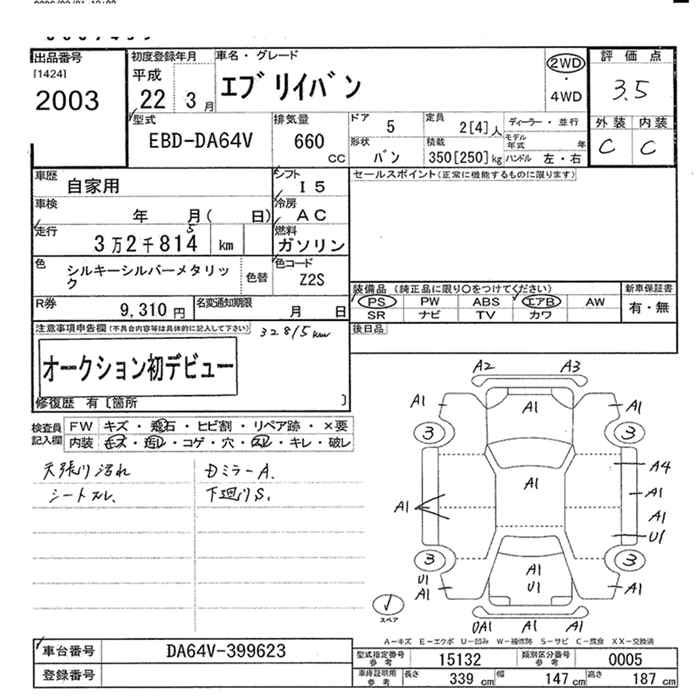 出品番号
[1424]
2003
初度登録年月
平成
22 3月
車名・グレード
エブリイバン
2WD
・
4WD
評価点
3.5
外装 内装
C C
型式
EBD-DA64V
排気量
660
cc
ドア
5
定員
2[4]人
ディーラー・並行
モデル年式 年
形状
バン
積載
350[250]kg
ハンドル 左・右
車歴
自家用
シフト
I5
セールスポイント(正常に機能するものに限ります)
車検
年 月( 日)
冷房
AC
走行
3万2千814 km
5
燃料
ガソリン
色
シルキーシルバーメタリック
色替
色コード
Z2S
R券
9,310円
名変通知期限
月 日
装備品 (純正品に限り○をつけてください)
PS PW ABS エアB AW
SR ナビ TV カワ
新車保証書
有・無
後日品
注意事項申告欄(不具合内容等は具体的に記入して下さい)
32815km
オークション初デビュー
修復歴 有〔箇所 〕
検査員記入欄
FW キズ・飛石・ヒビ割・リペア跡・×要
内装 キズ・汚レ・コゲ・穴・スレ・キレ・破レ
天張り汚れ
シートスレ.
DミラーA.
下廻りS.
A2 A3
A1 A1 A1
3 3
A4
A1 A1 A1
A1
U1
3 3
U1 A1 A1
A1 U1
スペア
A1 A1
A-キズ E-エクボ U-凹み W-補修跡 S-サビ C-腐食 XX-交換済
車台番号
DA64V-399623
登録番号
型式指定番号
参考
15132
類別区分番号
参考
0005
車庫証明用
参考
長さ 339cm 幅 147cm 高さ 187cm